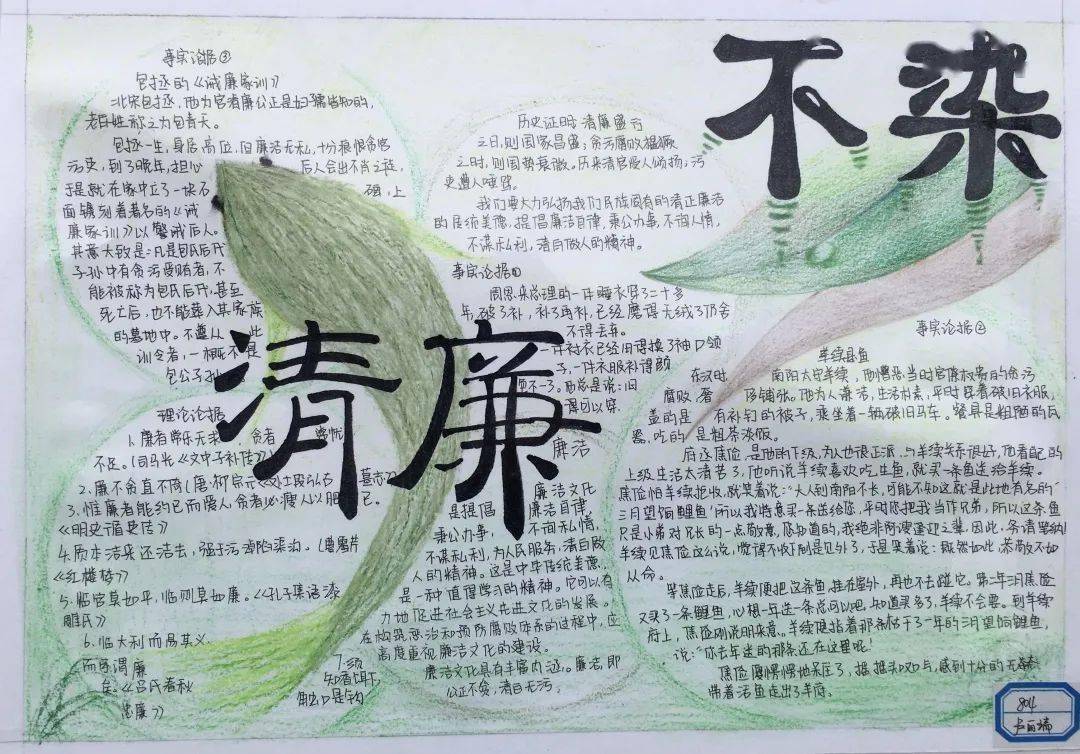 不染
清廉
事实论据③
包拯的《诫廉家训》
北宋包拯,他为官清廉公正是妇孺皆知的,
老百姓称之为包青天。
包拯一生,身居高位,但廉洁无私,十分痛恨贪官
污吏,到了晚年,担心 后人会出不肖之徒,
于是就在家中立了一块石 碑,上
面镌刻着著名的《诫
廉家训》以警诫后人。
其意大致是:凡是包氏后代
子孙中有贪污受贿者,不
能被称为包氏后代,甚至
死亡后,也不能葬入其家族
的墓地中。不遵从 此
训令者,一概不是
包公子孙
历史证明:清廉盛行
之日,则国家昌盛;贪污腐败猖獗
之时,则国势衰微。历来清官受人颂扬,污
吏遭人唾骂。
我们要大力弘扬我们民族固有的清正廉洁
的传统美德,提倡廉洁自律,秉公办事,不徇人情,
不谋私利,清白做人的精神。
事实论据①
周恩来总理的一件睡衣穿了二十多
年,破了补,补了再补,已经磨得无绒了仍舍
不得丢弃。
一件衬衣已经用得换了袖口领
子,一件衣服补得颜
不一了。而总是说:旧
得可以穿
事实论据②
羊续县鱼
东汉时 南阳太守羊续,他憎恶当时官僚权势的贪污
腐败,奢 侈铺张。他为人谦洁,生活朴素,平时穿着破旧衣服,
盖的是 有补钉的被子,乘坐着一辆破旧马车。餐具是粗陋的瓦
器,吃的 是粗茶淡饭。
府丞焦俭,是他的下级,为人也很正派,与羊续关系很好,他看自己的
上级生活太清苦了,他听说羊续喜欢吃生鱼,就买一条鱼送给羊续。
焦俭怕羊续拒收,就笑着说:“大人到南阳不长,可能不知这就是此地有名的“
三月望饷鲤鱼”!所以我特意买一条送给您,平时您把我当作兄弟,所以这条鱼
只是小弟对兄长的一点敬意,您知道的,我绝非阿谀逢迎之辈,因此,务请笑纳!
羊续见焦俭这么说,觉得不收下倒是见外了,于是笑着说:既然如此,恭敬不如
从命。
等焦俭走后,羊续便把这条鱼挂在窗外,再也不去碰它。第二年三月焦俭
又买了一条鲤鱼,心想一年送一条总可以吧,知道买多了,羊续不会要。到羊续
府上,焦俭刚说明来意,羊续便指着那条枯干了一年的三月望饷鲤鱼,
说:“你去年送的那条还在这里呢!
焦俭愣愣地呆住了,摇摇头叹叹气,感到十分的无奈,
带着活鱼走出了羊府。
理论论据
1.廉者常乐无求,贪者 常忧
不足。(司马光《文中子补传》)
2.廉不贪直不倚(唐·柳宗元《处士段弘古 墓志》
3.惟廉者能约己而爱人,贪者必瘦人以肥 己。
《明史循吏传》
4.质本洁来还洁去,强于污淖陷渠沟。(曹雪芹
《红楼梦》
5.临官莫如平,临财莫如廉。《孔子集语·
雕氏》
6.临大利而易其义,
可谓廉
矣。《吕氏春秋
忠廉》
7.须
知香饵下,
触口是铦钩
廉洁
廉洁文化
是提倡 廉洁自律,
秉公办事, 不徇私情,
不谋私利,为人民服务,清白做
人的精神。这是中华传统美德,
是一种值得学习的精神。它可以有
力地促进社会主义先进文化的发展。
在构筑惩治和预防腐败体系的过程中,应
高度重视廉洁文化的建设。
廉洁文化具有丰富内涵。廉洁,即
公正不贪,清白无污。
804